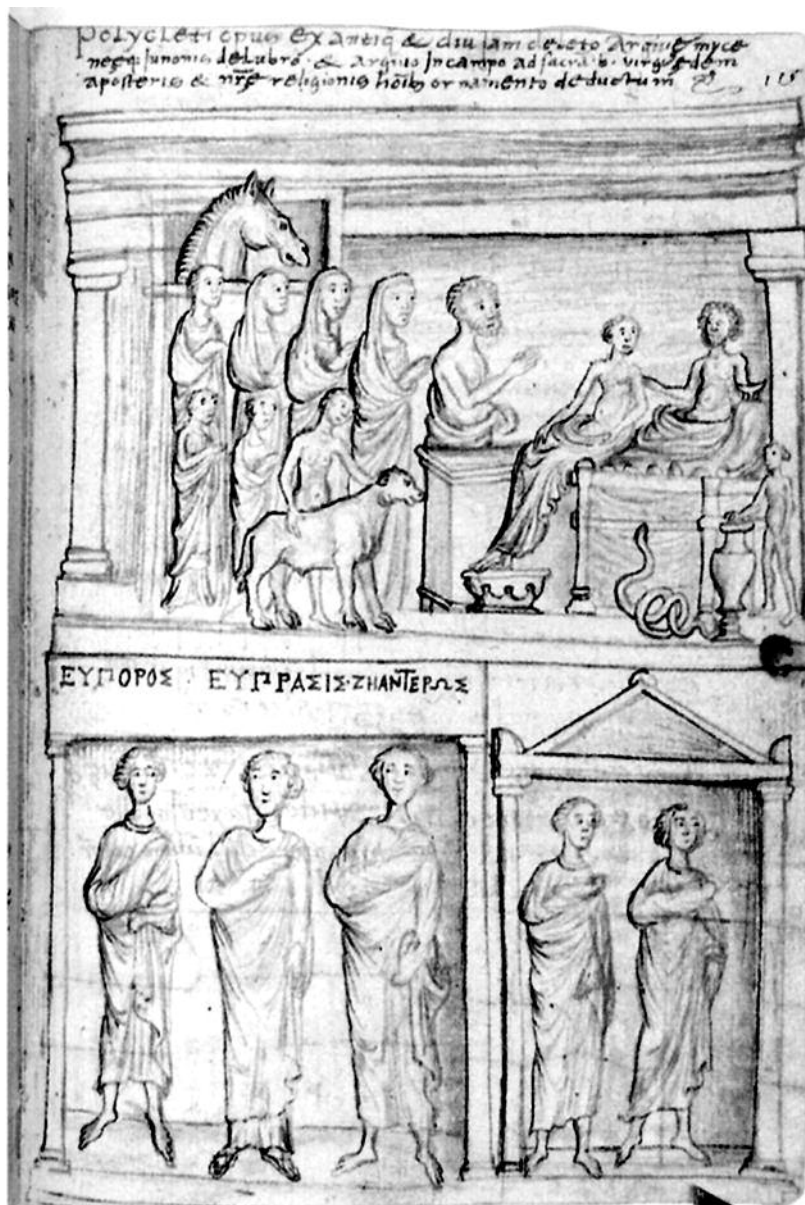 polycleti opus ex antiq & diu iam deleto Argiue myce
neeq; junonis delubro · & arguio in campo ad sacra · b · virg edem
aposteris & nr̄e religionis hoīb; ornamento deductum 115
ΕΥΠΟΡΟΣ ΕΥΠΡΑΣΙΣ·ΖΗΑΝΤΕΡΩΣ